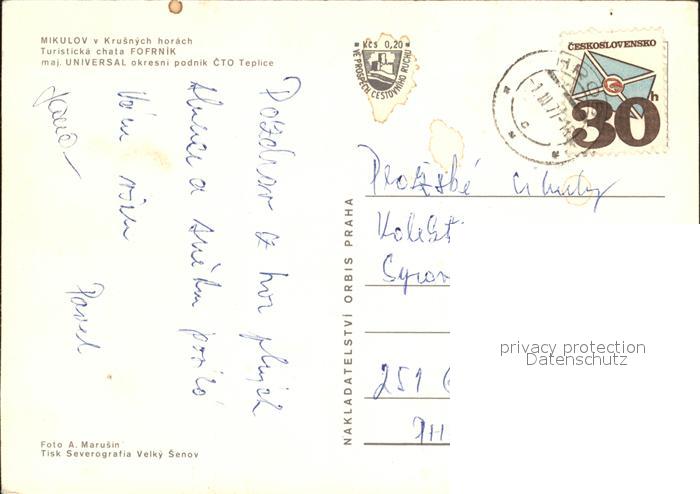 MIKULOV v Krušných horách
Turistická chata FOFRNÍK
maj. UNIVERSAL okresní podnik ČTO Teplice
Kčs 0,20
VE PROSPĚCH CESTOVNÍHO RUCHU
ČESKOSLOVENSKO
30h
Pozdrav z hor plných
slunce a sněhu posílá
Vám všem
Pavel
Jana
NAKLADATELSTVÍ ORBIS PRAHA
Pražské
251
privacy protection
Datenschutz
Foto A. Marušin
Tisk Severografia Velký Šenov